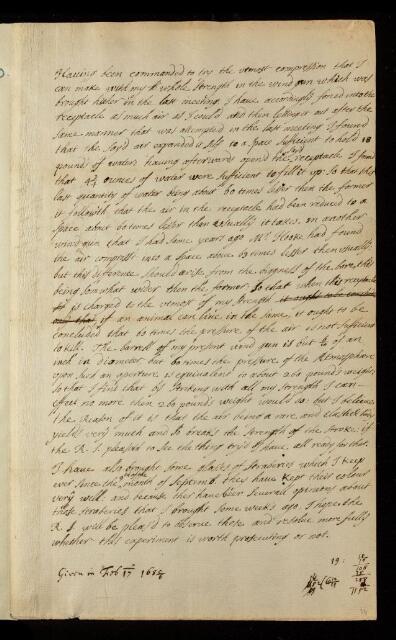 Having been commanded to try the utmost compression that I
can make with my whole strength in the wind gun which was
brought hither in the last meeting, I have accordingly forced into the
receptacle as much air as I could and then letting it out after the
same manner that was attempted in the last meeting I found
that the sayd air expanded it self to a space sufficient to hold 18
pounds of water: having afterwards opend the receptacle I found
that ounces of water were sufficient to fill it up: so that this
last quantity of water being about 60 times lesser than the former
it followth that the air in the receptacle had been reduced to a
space about 60 times lesser than usually it takes. in another
wind gun that I had some years ago Mr. Hooke had found
the air comprest into a space about 30 times lesser then usually
but this difference should arise from the bigness of the bore, this
being somwhat wider then the former. so that when this receptacle
is charged to the utmost of my strength it ought to be
if an animal can live in the same, it ought to be
concluded that 60 times the pressure of the air is not sufficient
to kill. The barrell of my present wind gun is but of an
inch in diameter but 60 times the pressure of the Atmosphere
upon such an aperture is equivalent to about 260 pounds weight,
so that I find that by striking with all my strength I can
effect no more then 260 pounds weight would do: but I believe
the Reason of it is that the air being a rare and elastick body
yields very much and so breaks the strength of the stroke: if
the R. S. pleases to see the thing try'd I have all ready for that.
I have also brought some glasses of straberies which I keep
ever since the month of Septemb. they have kept their colour
very well and because they have been severall opinions about
those straberies that I brought some weeks ago I hope the
R. S. will be pleas'd to observe these and resolve more fully
whether this experiment is worth prosecuting or not.
Given in Feb 17 168
19:
1152